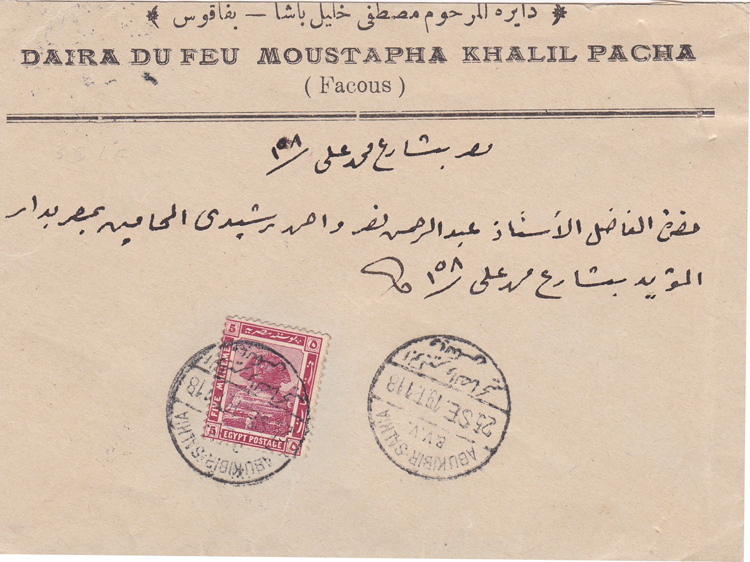 دايره المرحوم مصطفى خليل باشا — بفاقوس
DAIRA DU FEU MOUSTAPHA KHALIL PACHA
(Facous)
مصر بشارع محمد على ١٥٨
حضرة الفاضل الأستاذ عبدالرحمن نصر واحمد رشيدى المحامين بمصر بدار
المؤيد بشارع محمد على ١٥٨
5
٥
FIVE MILLIEMES
5
EGYPT POSTAGE
٥
18
ABUKIBIR-SALHIA
SE.19T.118
ABUKIBIR-SALHIA